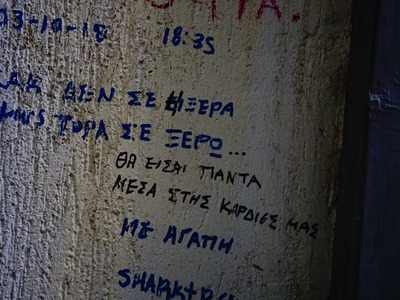 03-10-18 18:35
ΔΕΝ ΣΕ ΗΞΕΡΑ
ΤΟΡΑ ΣΕ ΞΕΡΩ...
ΘΑ ΕΙΣΑΙ ΠΑΝΤΑ
ΜΕΣΑ ΣΤΗΣ ΚΑΡΔΙΕΣ ΜΑΣ
ΜΕ ΑΓΑΠΗ